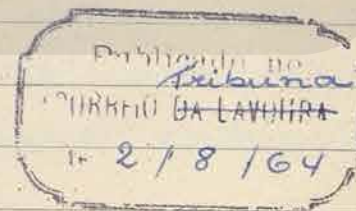 Publicado no
Tribuna
CORREIO DA LAVOURA
2 / 8 / 64